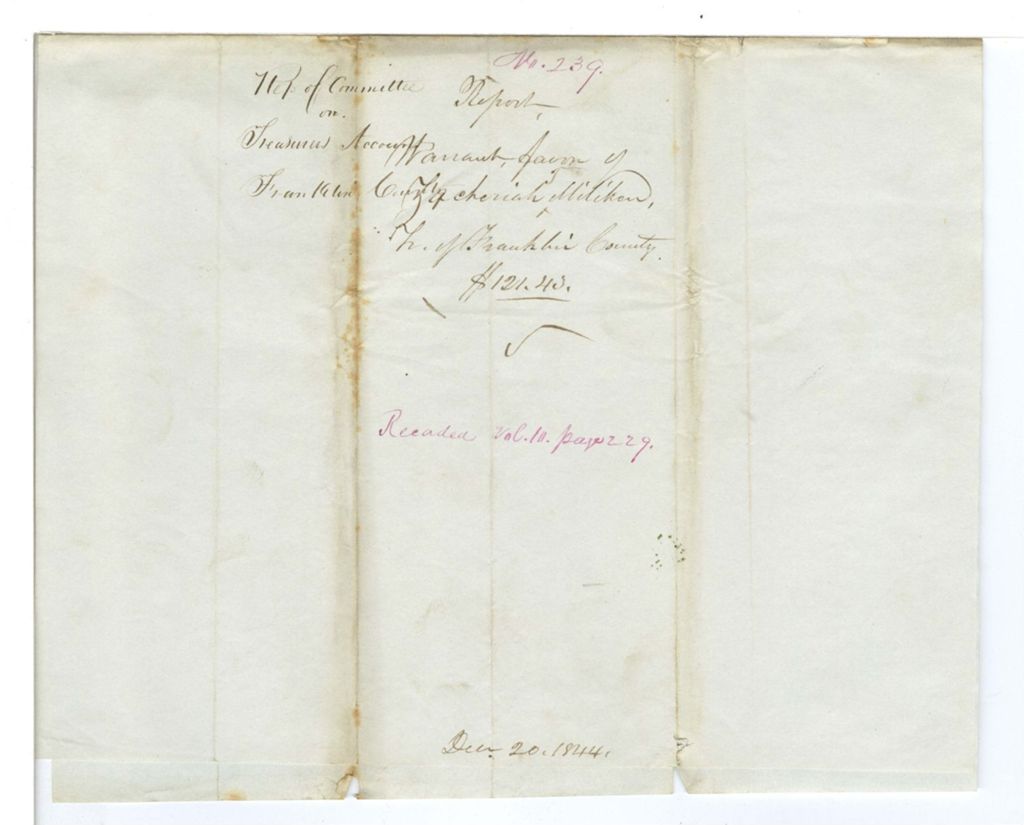 No. 239.
Rep. of Committee
on.
Treasurers Account
Franklin County
Report,
Warrant, favor of
Zacheriah Miliken,
Tr. of Franklin County.
$121.43.
Recorded Vol. 10. page 229.
Dec. 20. 1844.